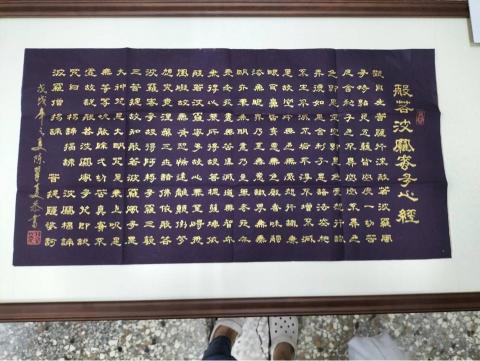 般若波羅蜜多心經
觀自在菩薩行深般若波羅蜜
多時照見五蘊皆空度一切苦
厄舍利子色不異空空不異色
色即是空空即是色受想行識
亦復如是舍利子是諸法空相
不生不滅不垢不淨不增不減
是故空中無色無受想行識無
眼耳鼻舌身意無色聲香味觸
法無眼界乃至無意識界無無
明亦無無明盡乃至無老死亦
無老死盡無苦集滅道無智亦
無得以無所得故菩提薩埵依
般若波羅蜜多故心無罣礙無
罣礙故無有恐怖遠離顛倒夢
想究竟涅槃三世諸佛依般若
波羅蜜多故得阿耨多羅三藐
三菩提故知般若波羅蜜多是
大神咒是大明咒是無上咒是
無等等咒能除一切苦真實不
虛故說般若波羅蜜多咒即說
咒曰 揭諦揭諦 波羅揭諦
波羅僧揭諦 菩提薩婆訶
戊戌年之夏陳書